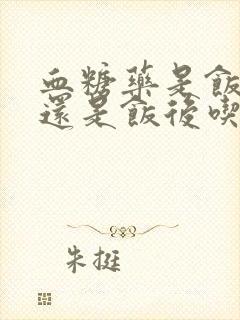 血糖藥是飯
還是飯後喫
朱挺